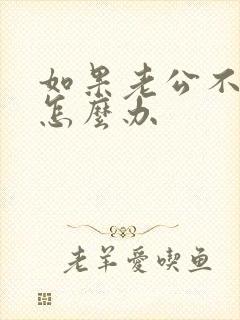 如果老公不
怎麼办
老羊愛喫鱼